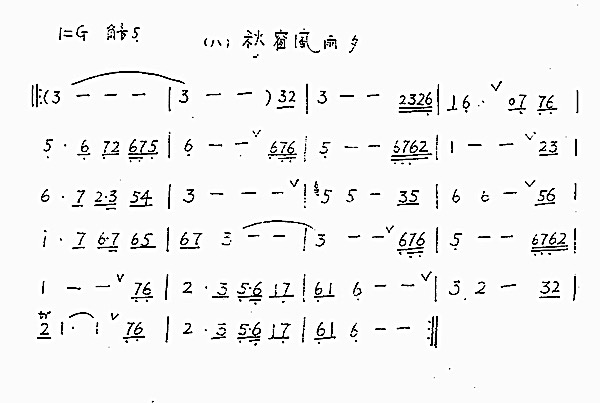 1=G 筒音5
(八) 秋窗風雨夕
‖:(3 - - - | 3 - - ) 32 | 3 - - 2326 | 16· ˇ 07 76 |
5 · 6 72 675 | 6 - - ˇ 676 | 5 - - 6762 | 1 - - ˇ 23 |
6 · 7 2·3 54 | 3 - - - ˇ | 5 5 - 35 | 6 6 - ˇ 56 |
i · 7 6·7 65 | 67 3 - - | 3 - - ˇ 676 | 5 - - 6762 |
1 - - ˇ 76 | 2 · 3 5·6 17 | 61 6 - - ˇ | 3 2 - 32 |
2 1· 1 ˇ 76 | 2 · 3 5·6 17 | 61 6 - - :‖